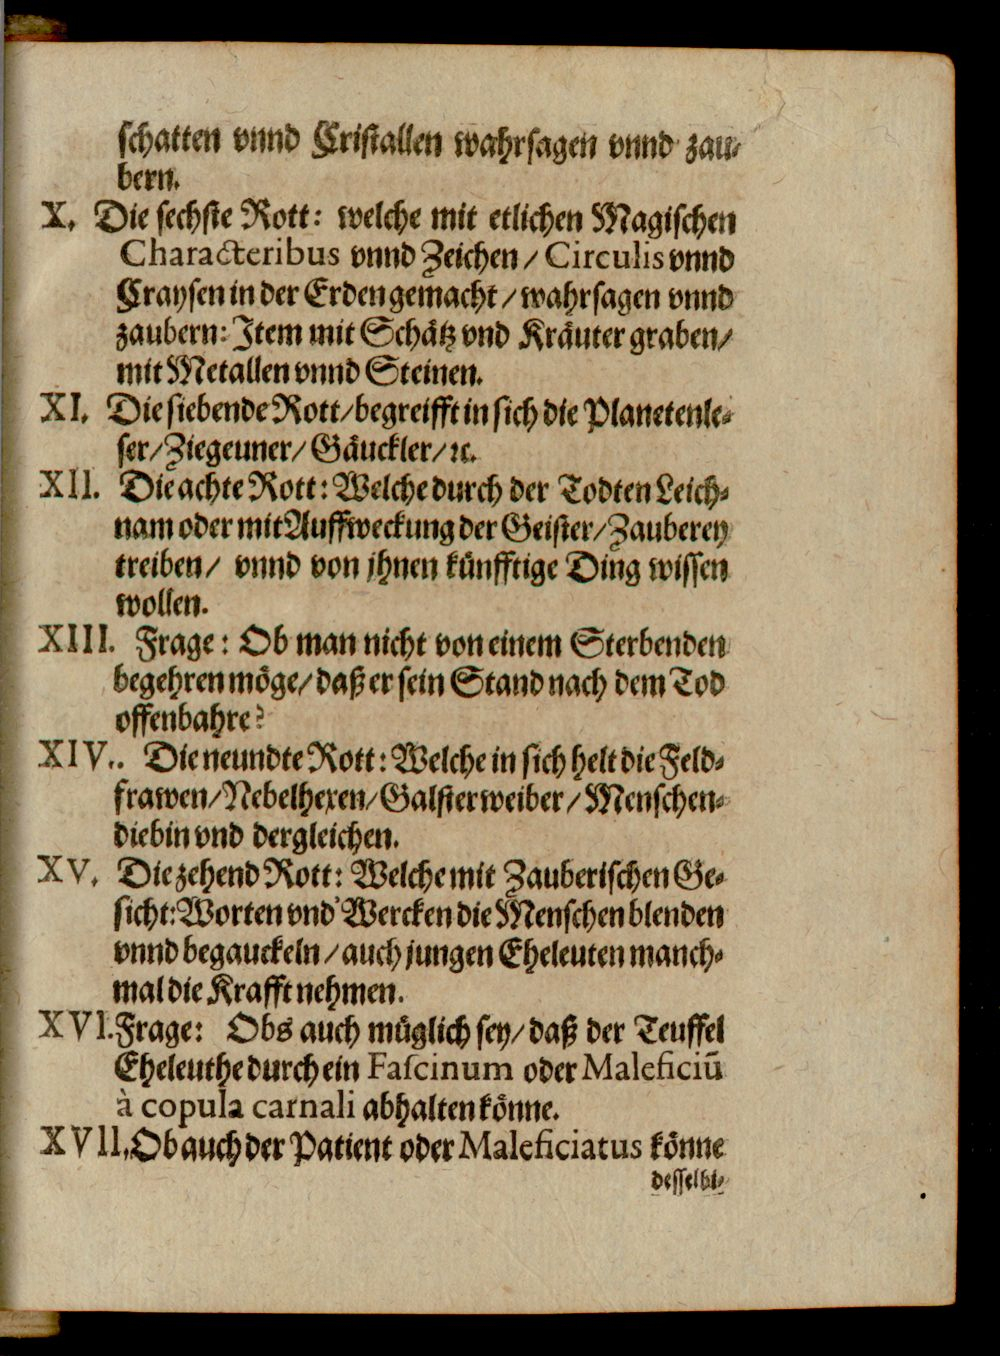 schatten vnnd Cristallen wahrsagen vnnd zau-
bern.
X. Die sechste Rott: welche mit etlichen Magischen
Characteribus vnnd Zeichen / Circulis vnnd
Craysen in der Erden gemacht / wahrsagen vnnd
zaubern: Item mit Schätz vnd Kräuter graben/
mit Metallen vnnd Steinen.
XI. Die siebende Rott/begreifft in sich die Planetenle-
ser/Ziegeuner/Gäuckler/ꝛc.
XII. Die achte Rott: Welche durch der Todten Leich-
nam oder mit Auffweckung der Geister/Zauberey
treiben/ vnnd von jhnen künfftige Ding wissen
wollen.
XIII. Frage: Ob man nicht von einem Sterbenden
begehren möge/daß er sein Stand nach dem Tod
offenbahre?
XIV.. Die neundte Rott: Welche in sich helt die Feld-
frawen/Nebelhexen/Galsterweiber/Menschen-
diebin vnd dergleichen.
XV. Die zehend Rott: Welche mit Zauberischen Ge-
sicht: Worten vnd Wercken die Menschen blenden
vnnd begauckeln/auch jungen Eheleuten manch-
mal die Krafft nehmen.
XVI. Frage: Obs auch müglich sey/daß der Teuffel
Eheleuthe durch ein Fascinum oder Maleficiū
à copula carnali abhalten könne.
XVII. Ob auch der Patient oder Maleficiatus könne
desselbi-